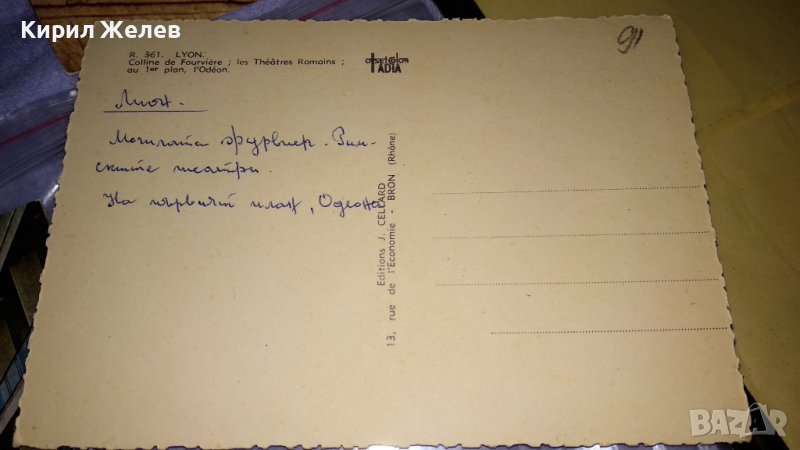 Кирил Желев
R. 361. LYON.
Colline de Fourvière ; les Théâtres Romains ;
au 1er plan, l'Odéon.
OFSETCOLOR
IADIA
91
Лион.
Могилата Фурвиер. Рим-
ските театри.
На първият план, Одеона
Editions J. CELLARD
13, rue de l'Economie - BRON (Rhône)
BAZAR